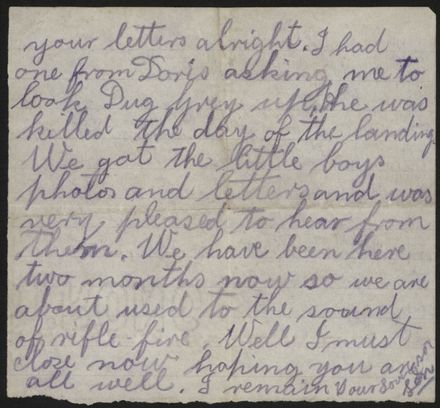 your letters alright. I had
one from Doris asking me to
look Dug Grey up. He was
killed the day of the landing
We got the little boys
photos and letters and was
very pleased to hear from
them. We have been here
two months now so we are
about used to the sound
of rifle fire. Well I must
close now hoping you are
all well. I remain your
son